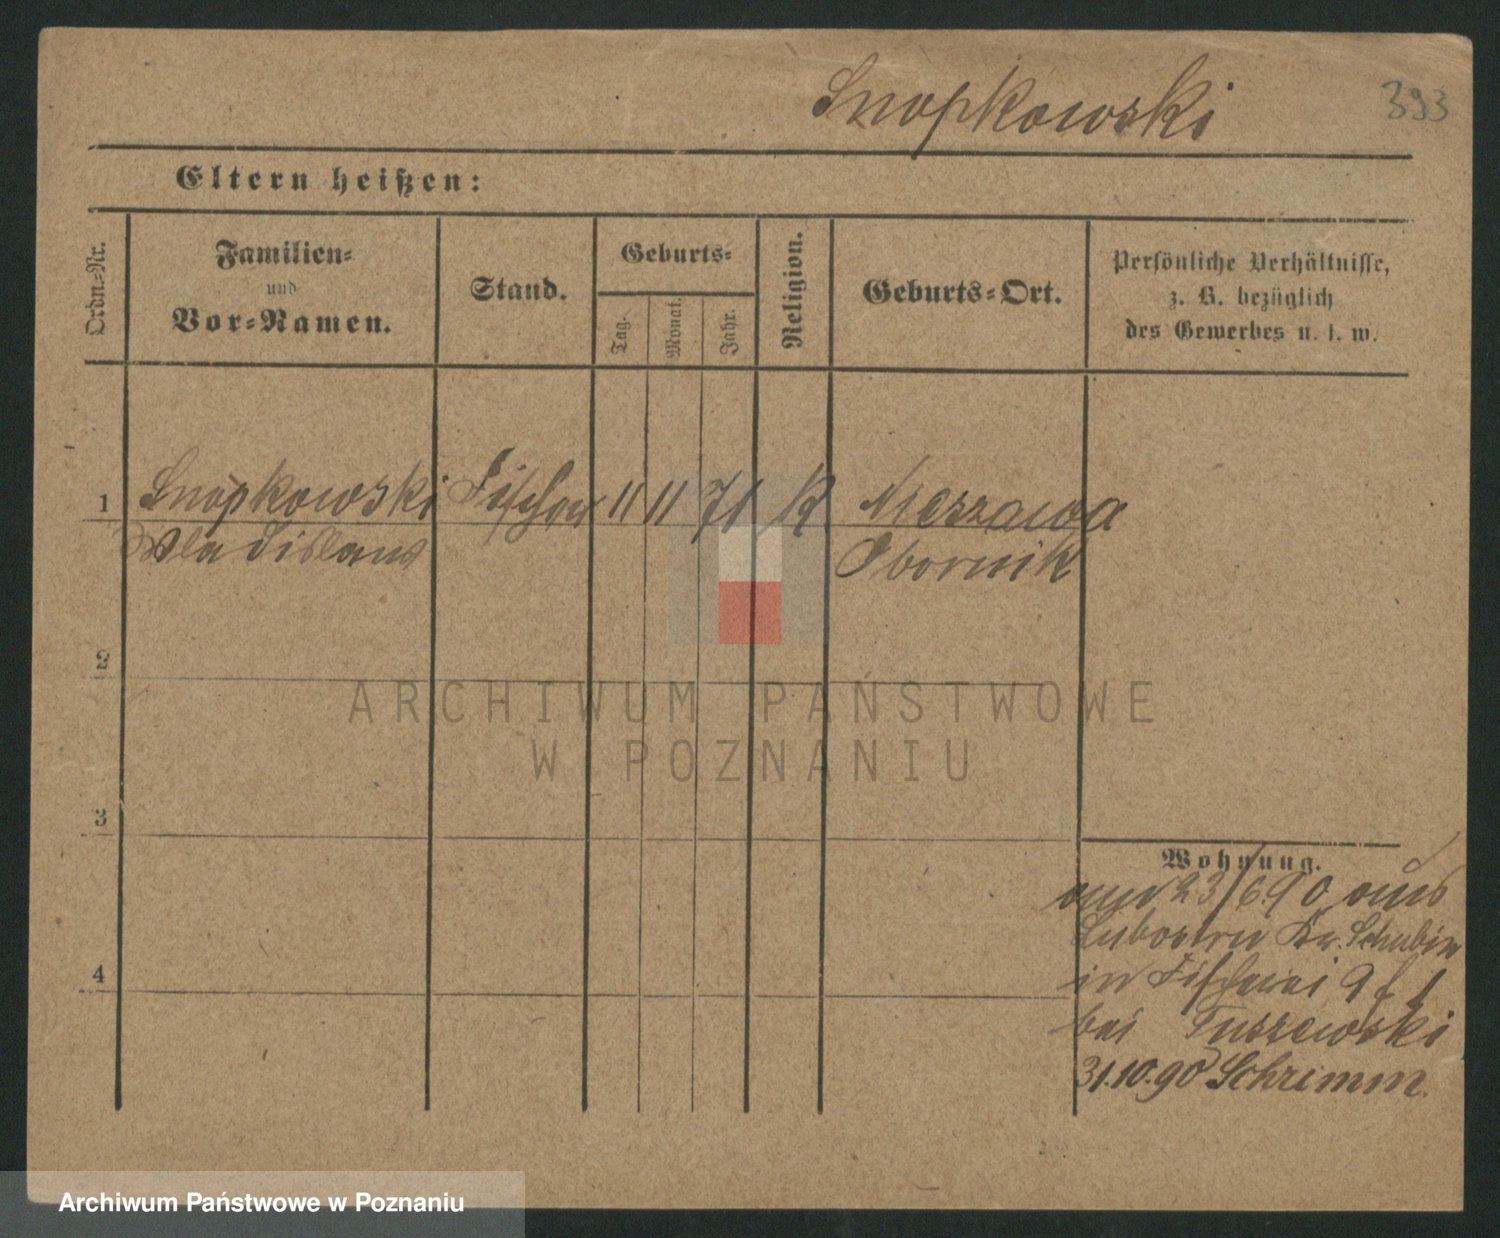 Snopkowski
393
Eltern heißen:
Ordn.-Nr.
Familien-
und
Vor-Namen.
Stand.
Geburts-
Tag.
Monat.
Jahr.
Religion.
Geburts-Ort.
Persönliche Verhältnisse,
z. B. bezüglich
des Gewerbes u. s. w.
1 Snopkowski 11 11 71 K
Wladislaus Obornik
2
3
4
Wohnung.
23/6.90 aus
Kr. Schubin
in 9 f 1
bei
31.10.90 Schrimm.
ARCHIWUM PAŃSTWOWE
W POZNANIU
Archiwum Państwowe w Poznaniu